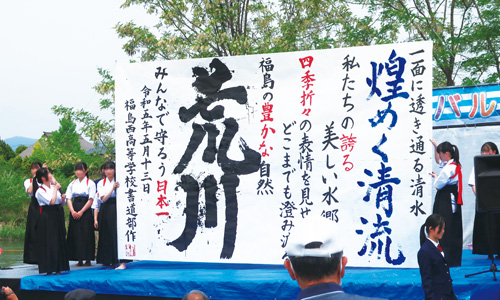 一面に透き通る清水
煌めく清流
私たちの誇る
美しい水郷
四季折々の表情を見せ
どこまでも澄み
荒川
福島の豊かな自然
みんなで守ろう日本一
令和五年五月十三日
福島西高等学校書道部作
バル